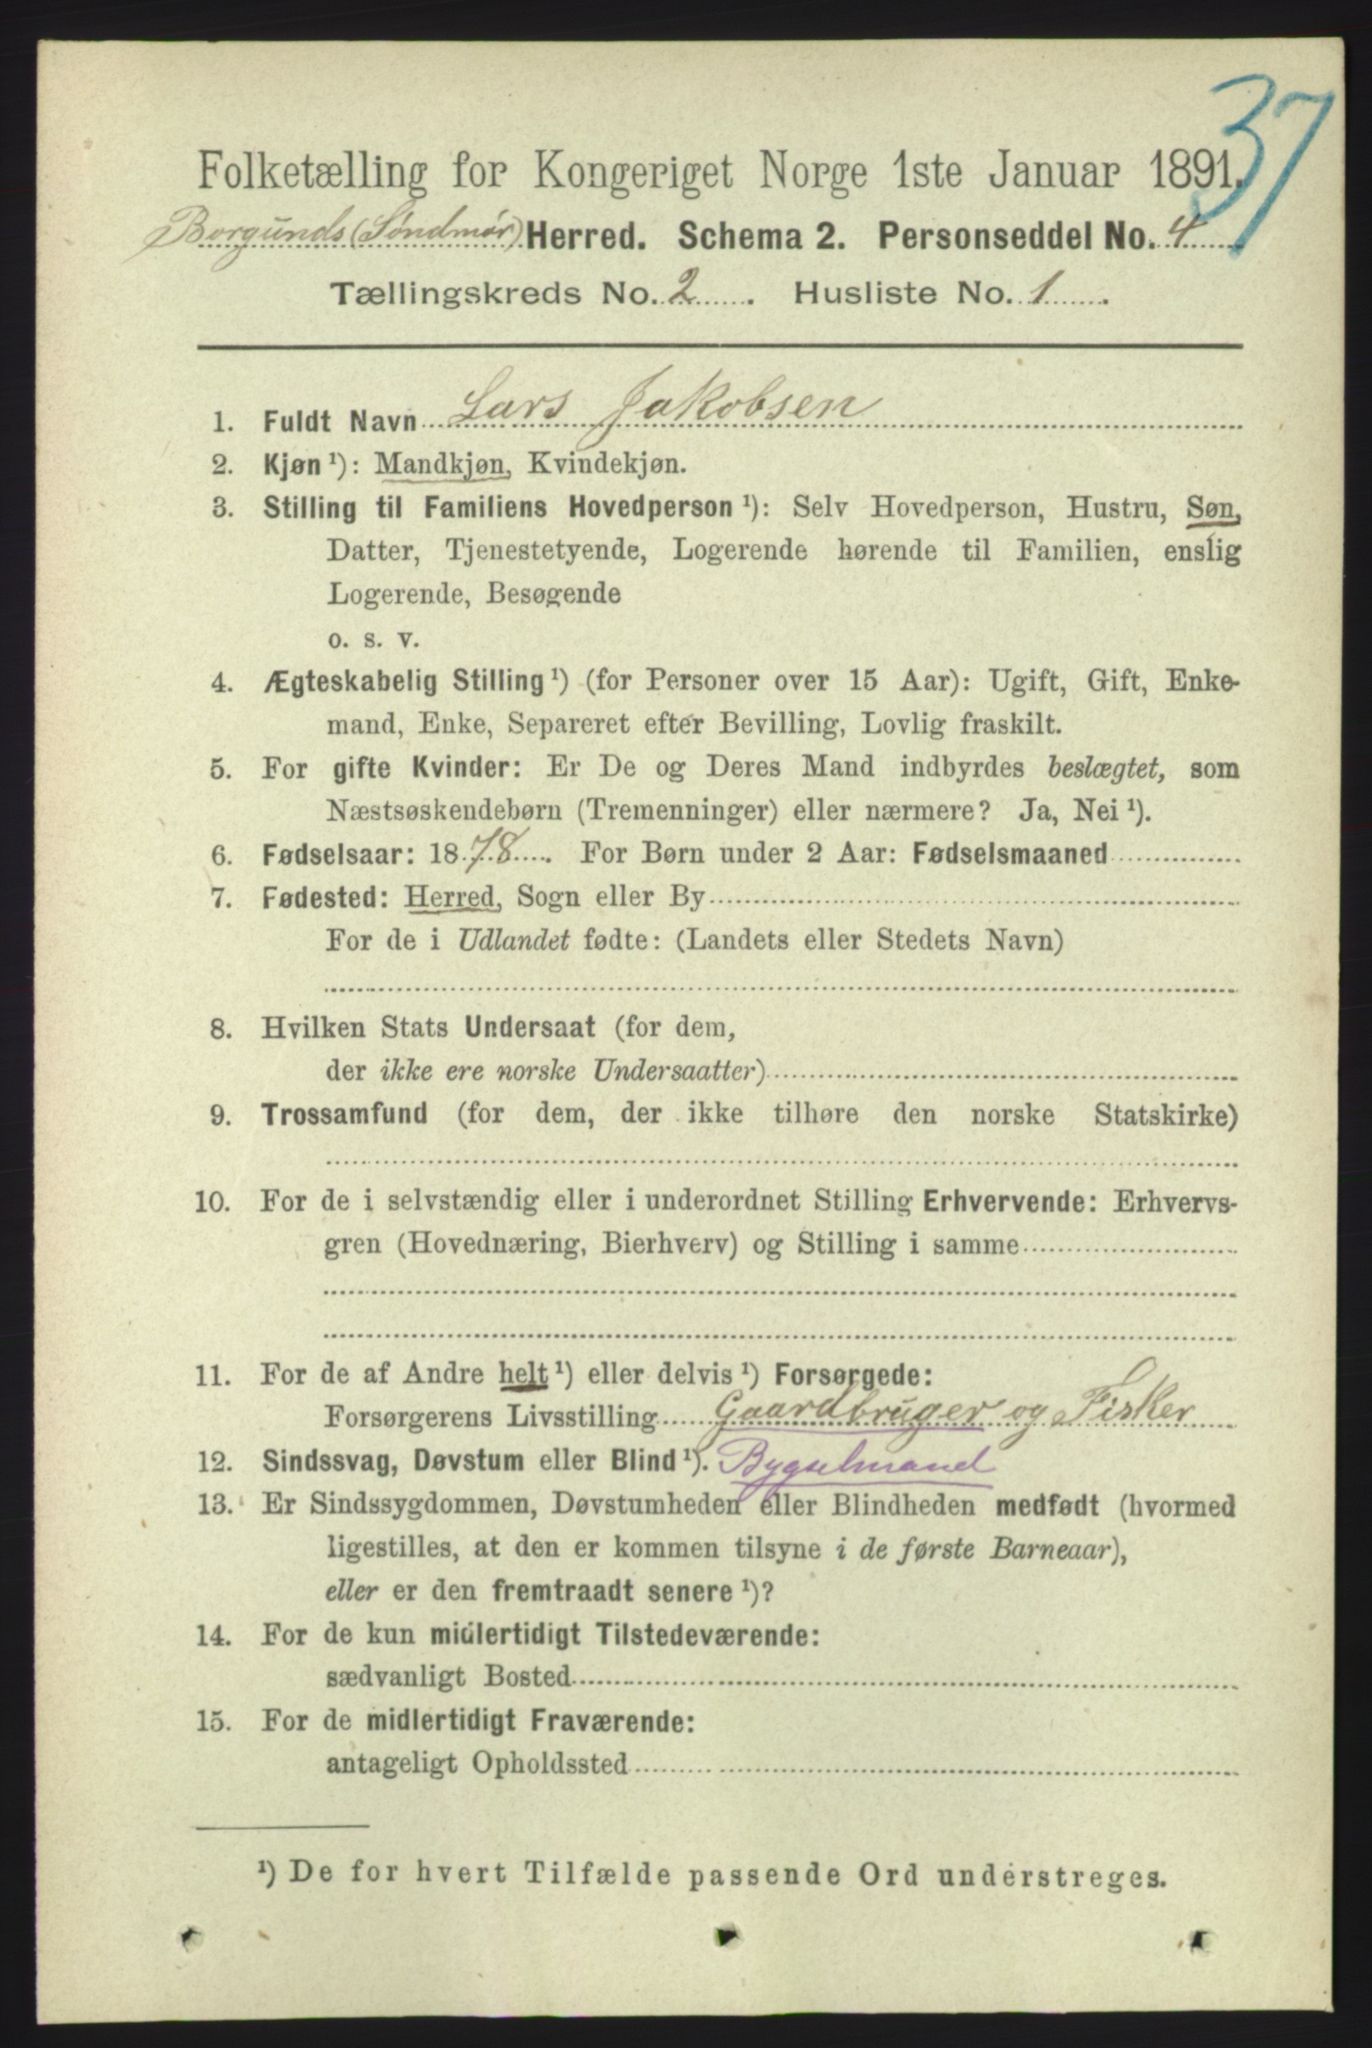 37
Folketælling for Kongeriget Norge 1ste Januar 1891.
Borgunds (Söndmör) Herred. Schema 2. Personseddel No. 4
Tællingskreds No. 2. Husliste No. 1.
1. Fuldt Navn Lars Jakobsen
2. Kjøn ¹): Mandkjøn, Kvindekjøn.
3. Stilling til Familiens Hovedperson ¹): Selv Hovedperson, Hustru, Søn,
Datter, Tjenestetyende, Logerende hørende til Familien, enslig
Logerende, Besøgende
o. s. v.
4. Ægteskabelig Stilling ¹) (for Personer over 15 Aar): Ugift, Gift, Enke-
mand, Enke, Separeret efter Bevilling, Lovlig fraskilt.
5. For gifte Kvinder: Er De og Deres Mand indbyrdes beslægtet, som
Næstsøskendebørn (Tremenninger) eller nærmere? Ja, Nei ¹).
6. Fødselsaar: 1878. For Børn under 2 Aar: Fødselsmaaned
7. Fødested: Herred, Sogn eller By
For de i Udlandet fødte: (Landets eller Stedets Navn)
8. Hvilken Stats Undersaat (for dem,
der ikke ere norske Undersaatter)
9. Trossamfund (for dem, der ikke tilhøre den norske Statskirke)
10. For de i selvstændig eller i underordnet Stilling Erhvervende: Erhvervs-
gren (Hovednæring, Bierhverv) og Stilling i samme
11. For de af Andre helt ¹) eller delvis ¹) Forsørgede:
Forsørgerens Livsstilling Gaardbruger og Fisker
12. Sindssvag, Døvstum eller Blind ¹). Bygselmand
13. Er Sindssygdommen, Døvstumheden eller Blindheden medfødt (hvormed
ligestilles, at den er kommen tilsyne i de første Barneaar),
eller er den fremtraadt senere ¹)?
14. For de kun midlertidigt Tilstedeværende:
sædvanligt Bosted
15. For de midlertidigt Fraværende:
antageligt Opholdssted
¹) De for hvert Tilfælde passende Ord understreges.